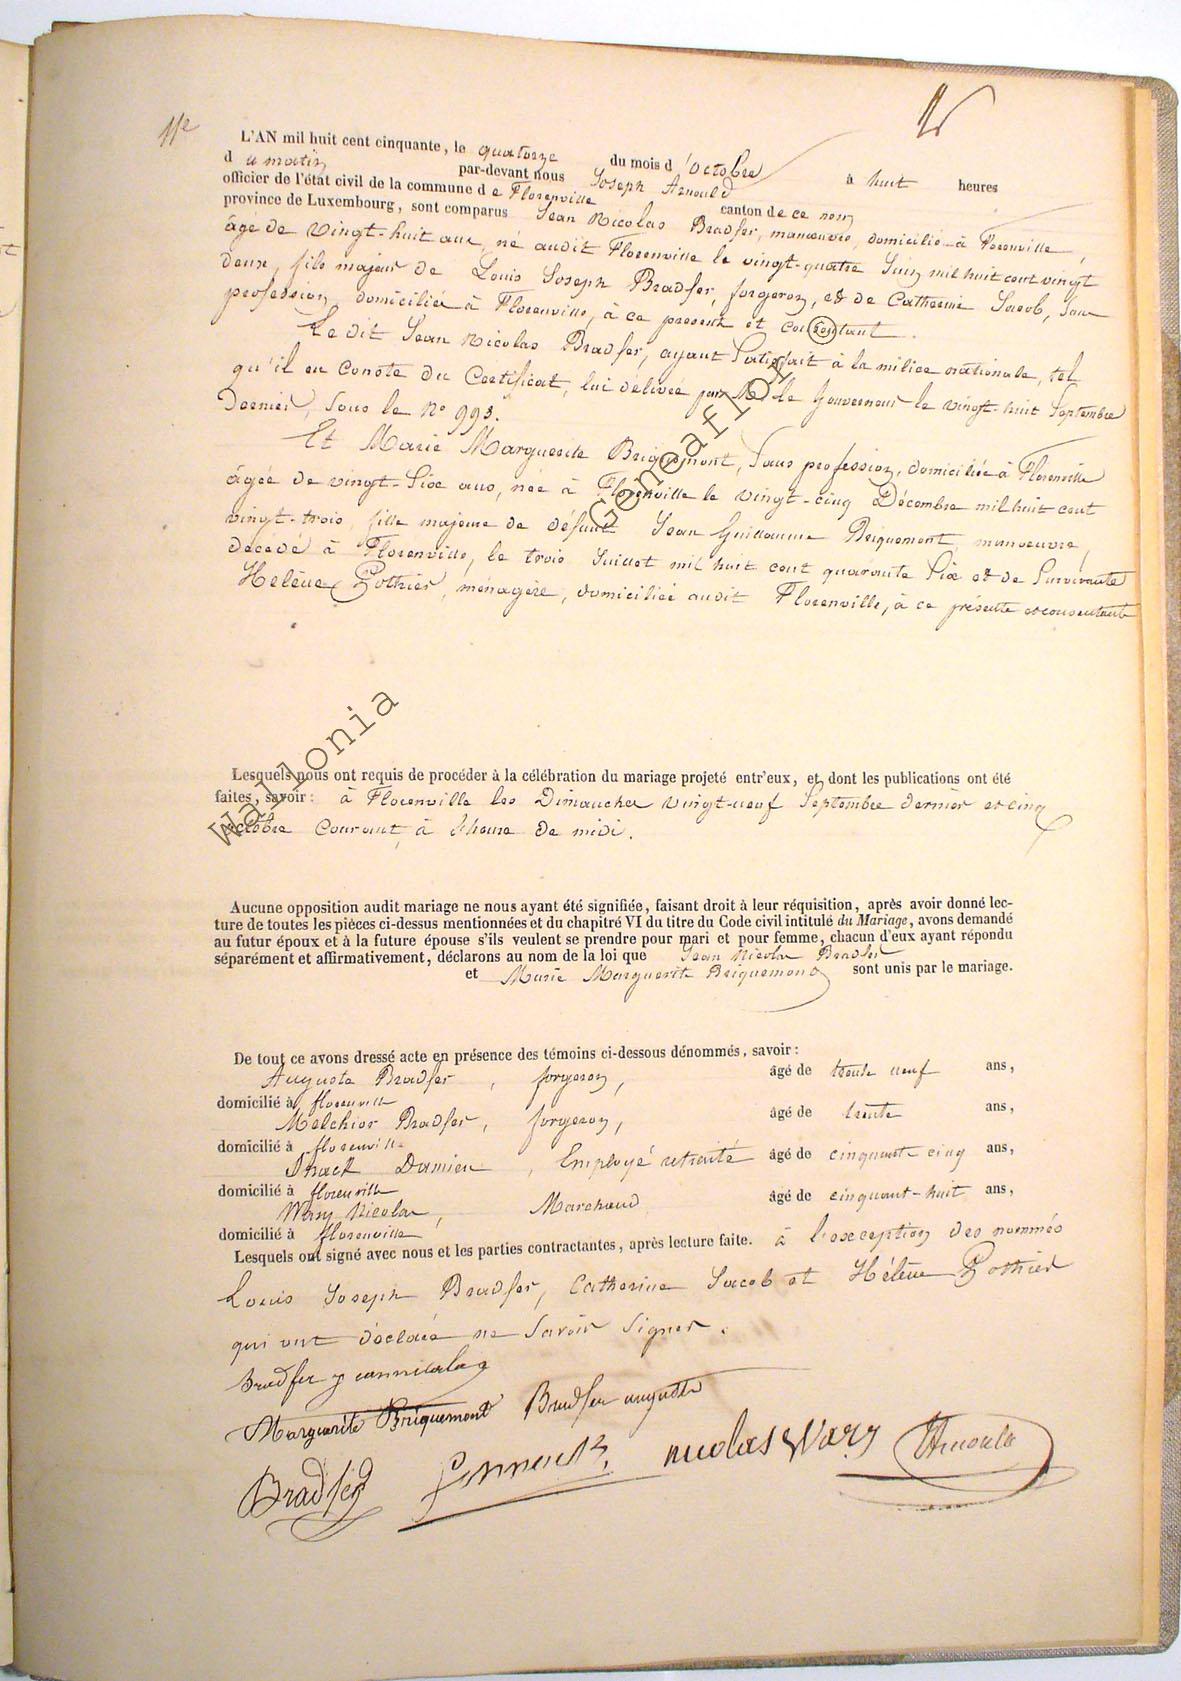 11e
L'AN mil huit cent cinquante, le quatorze du mois d'octobre à huit heures
du matin par-devant nous Joseph Arnould
officier de l'état civil de la commune de Florenville canton de ce nom
province de Luxembourg, sont comparus Jean Nicolas Bradfer, manœuvre, domicilié à Florenville,
âgé de vingt-huit ans, né audit Florenville le vingt-quatre Juin mil huit cent vingt
deux, fils majeur de Louis Joseph Bradfer, forgeron, et de Catherine Jacob, sans
profession, domiciliés à Florenville, à ce présents et consentant.
Le dit Jean Nicolas Bradfer, ayant satisfait à la milice nationale, tel
qu'il en conste du Certificat, lui délivré par Mr le Gouverneur le vingt-huit Septembre
dernier, sous le No 993.
Et Marie Marguerite Briquemont, sans profession, domiciliée à Florenville
âgée de vingt-six ans, née à Florenville le vingt-cinq Décembre mil huit cent
vingt-trois, fille majeure de défunt Jean Guillaume Briquemont, manœuvre,
décédé à Florenville, le trois Juillet mil huit cent quarante six et de survivante
Helène Pothier, ménagère, domiciliée audit Florenville, à ce présente et consentante
Genealfor
Wallonia
Lesquels nous ont requis de procéder à la célébration du mariage projeté entr'eux, et dont les publications ont été
faites, savoir : à Florenville les Dimanches vingt-neuf Septembre dernier et cinq
octobre courant, à l'heure de midi.
Aucune opposition audit mariage ne nous ayant été signifiée, faisant droit à leur réquisition, après avoir donné lec-
ture de toutes les pièces ci-dessus mentionnées et du chapitre VI du titre du Code civil intitulé du Mariage, avons demandé
au futur époux et à la future épouse s'ils veulent se prendre pour mari et pour femme, chacun d'eux ayant répondu
séparément et affirmativement, déclarons au nom de la loi que Jean Nicolas Bradfer
et Marie Marguerite Briquemont sont unis par le mariage.
De tout ce avons dressé acte en présence des témoins ci-dessous dénommés, savoir :
Auguste Bradfer, forgeron, âgé de trente neuf ans,
domicilié à florenville
Melchior Bradfer, forgeron, âgé de trente ans,
domicilié à florenville
Damien, Employé retraité âgé de cinquante cinq ans,
domicilié à florenville
Wary Nicolas, Marchand âgé de cinquante-huit ans,
domicilié à florenville
Lesquels ont signé avec nous et les parties contractantes, après lecture faite. à l'exception des nommés
Louis Joseph Bradfer, Catherine Jacob et Hélène Pothier
qui ont déclaré ne savoir signer.
Bradfer jeannicolas
Marguerite Briquemont Bradfer auguste
Bradfer nicolas Wary Arnould